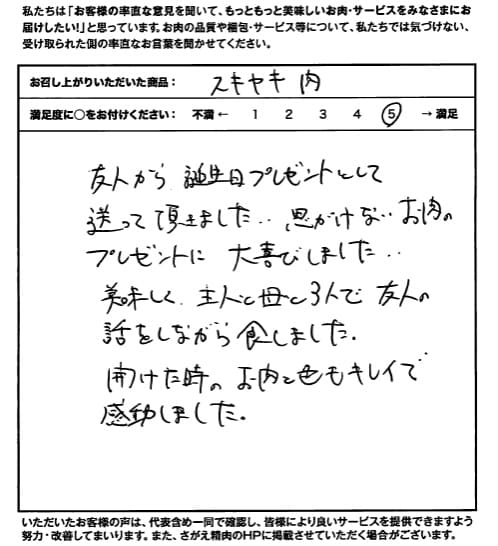 私たちは「お客様の率直な意見を聞いて、もっともっと美味しいお肉・サービスをみなさまにお
届けしたい!」と思っています。お肉の品質や梱包・サービス等について、私たちでは気づけない、
受け取られた側の率直なお言葉を聞かせてください。
お召し上がりいただいた商品： スキヤキ肉
満足度に○をお付けください： 不満 ← 1 2 3 4 5 → 満足
友人から 誕生日プレゼントとして
送って頂きました‥ 思がけない お肉の
プレゼントに 大喜びしました‥
美味しく 主人と母と3人で 友人の
話をしながら食しました.
開けた時の お肉と色もキレイで
感動しました.
いただいたお客様の声は、代表含め一同で確認し、皆様により良いサービスを提供できますよう
努力・改善してまいります。また、さがえ精肉のHPに掲載させていただく場合がございます。